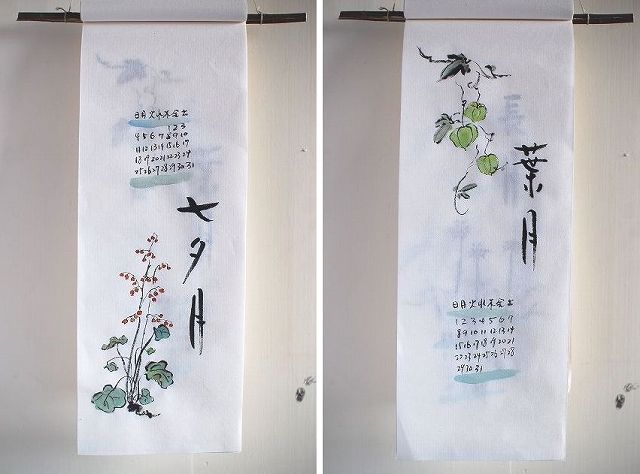 日月火水木金土
1 2 3
4 5 6 7 8 9 10
11 12 13 14 15 16 17
18 19 20 21 22 23 24
25 26 27 28 29 30 31
七夕月
葉月
日月火水木金土
1 2 3 4 5 6 7
8 9 10 11 12 13 14
15 16 17 18 19 20 21
22 23 24 25 26 27 28
29 30 31